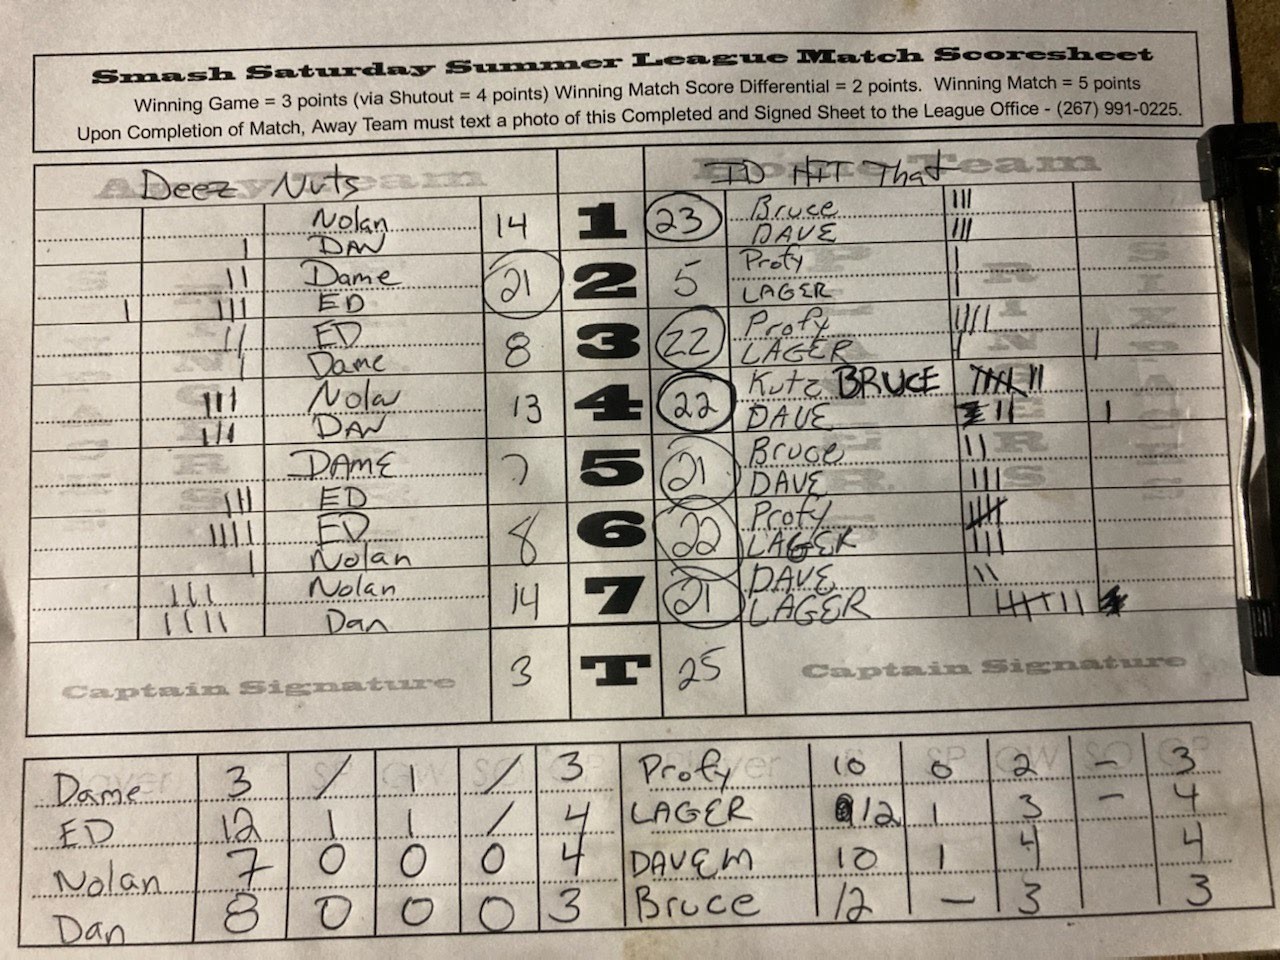 Smash Saturday Summer League Match Scoresheet
Winning Game = 3 points (via Shutout = 4 points) Winning Match Score Differential = 2 points. Winning Match = 5 points
Upon Completion of Match, Away Team must text a photo of this Completed and Signed Sheet to the League Office - (267) 991-0225.
Away Team Home Team
Deez Nuts I'D HIT That
Nolan 14 1 23 Bruce
DAN DAVE
Dame 21 2 5 Profy
ED LAGER
ED 8 3 22 Profy
Dame LAGER
Nolan 13 4 22 Kutz BRUCE
DAN DAVE
DAME 7 5 21 Bruce
ED DAVE
ED 8 6 22 Profy
Nolan LAGER
Nolan 14 7 21 DAVE
Dan LAGER
3 T 25
Captain Signature Captain Signature
Player IS SP GW SO GP Player IS SP GW SO GP
Dame 3 / 1 / 3 Profy 10 0 2 - 3
ED 12 1 1 / 4 LAGER 12 1 3 - 4
Nolan 7 0 0 0 4 DAVEM 10 1 4 4
Dan 8 0 0 0 3 Bruce 12 - 3 3